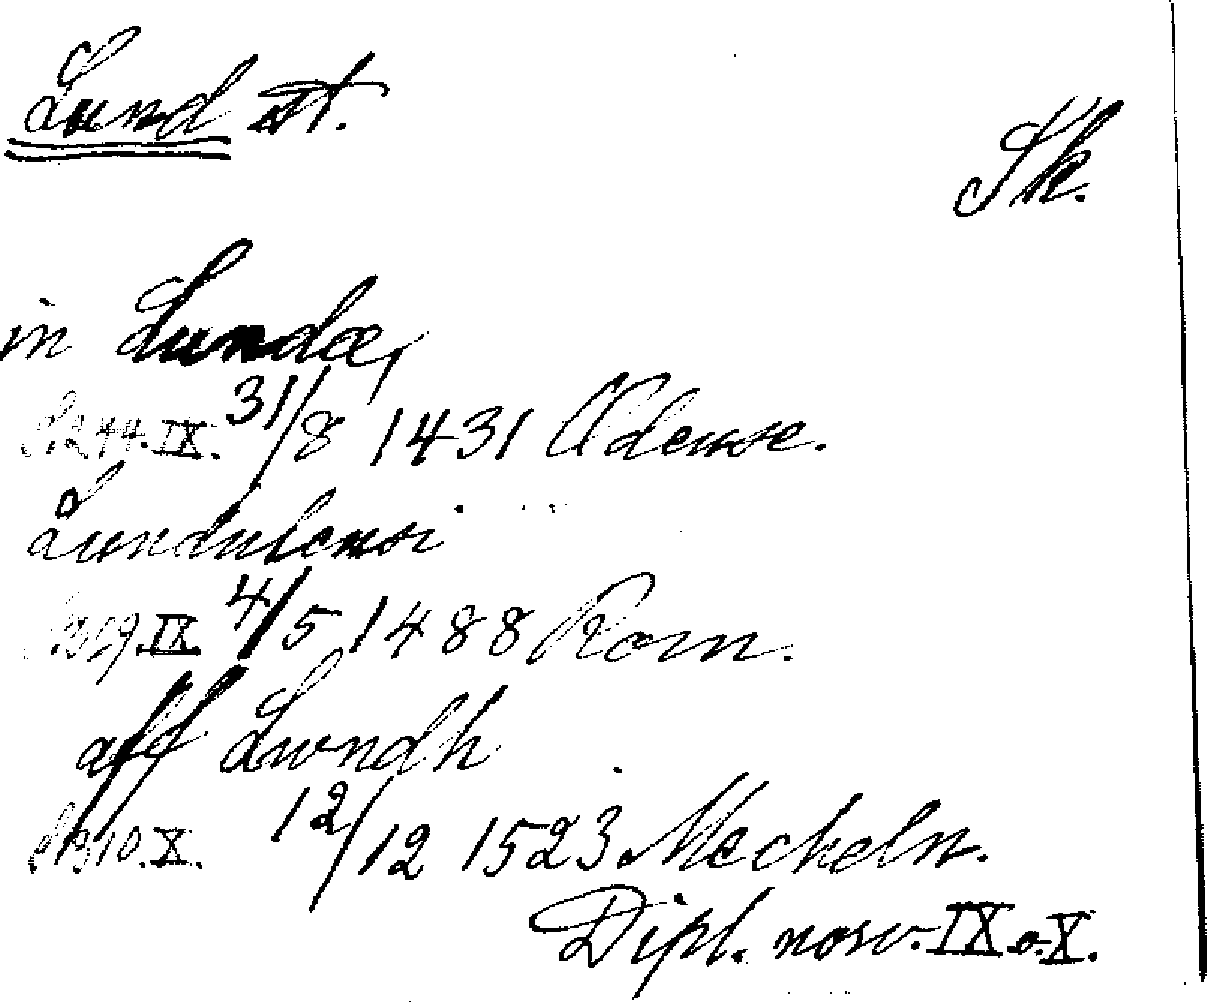 Lund st.
Sk.
in Lunde,
S. 244. IX. 31/8 1431 Odense.
Lundulensi
S. 319. IX. 4/5 1488 Rom.
aff Lwndh
S. 310. X. 12/12 1523 Mecheln.
Dipl. norv. IX o. X.